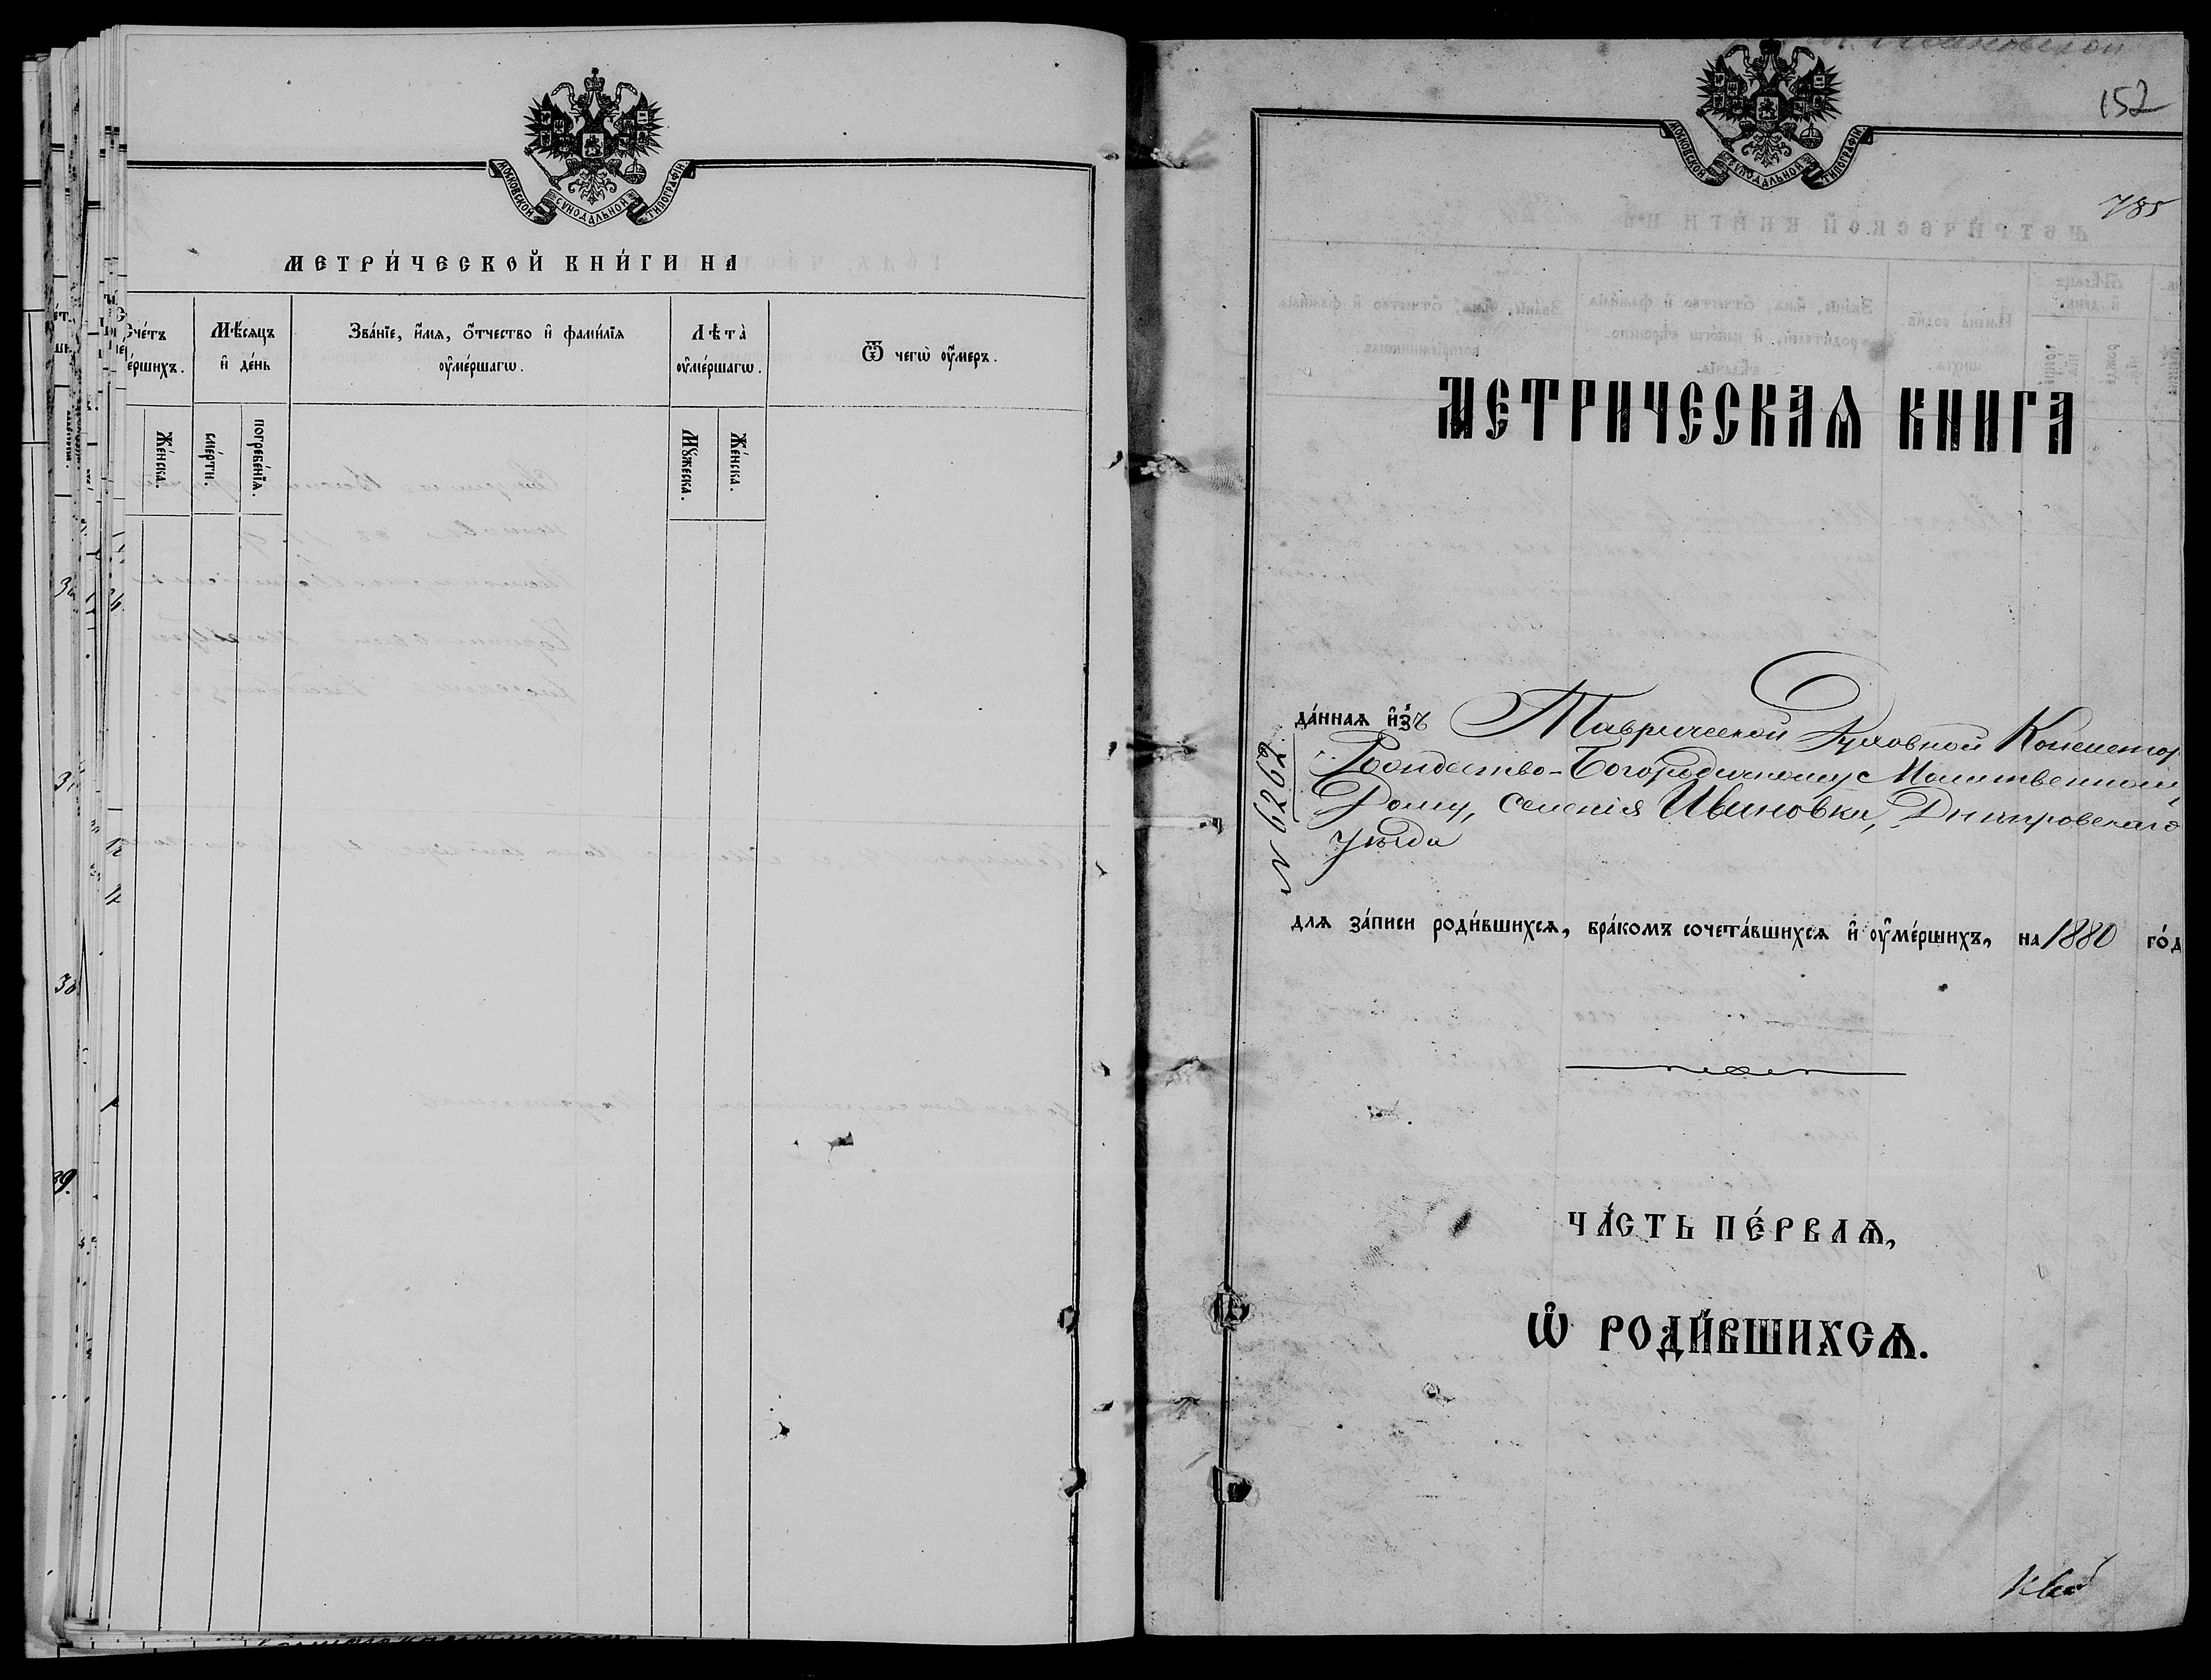 МОСКОВСКОЙ СѴНОДАЛЬНОЙ ТИПОГРАФІИ
МЕТРИ́ЧЕСКОЙ КНИ́ГИ НА
Счéтъ
ѹ҆мéршихъ.
Мѣ́сяцъ
и҆ дéнь
Звáнїе, и҆́мѧ, ѻ҆́тчество и҆ фами́лїѧ
ѹ҆мéршагѡ.
Лѣтà
ѹ҆мéршагѡ.
Ѿ чегѡ̀ ѹ҆́меръ.
Жéнска.
смéрти.
погребéнїѧ.
Мꙋ́жеска.
Жéнска.
152
МОСКОВСКОЙ СѴНОДАЛЬНОЙ ТИПОГРАФІИ
785
МЕТРИЧЕСКАѦ КНИГА
дáннаѧ и҆зъ Таврической Духовной Консистор
Рождество-Богородичному Молитвенному
Дому, селенія Ивановки, Днѣпровскаго
Уѣзда
№ 6262
длѧ зáписи роди́вшихсѧ, брáкомъ сочетáвшихсѧ и҆ ѹ҆мéршихъ, на 1880 гóд
ЧÁСТЬ ПÉРВАѦ,
Ѡ҆ РОДИ́ВШИХСѦ.